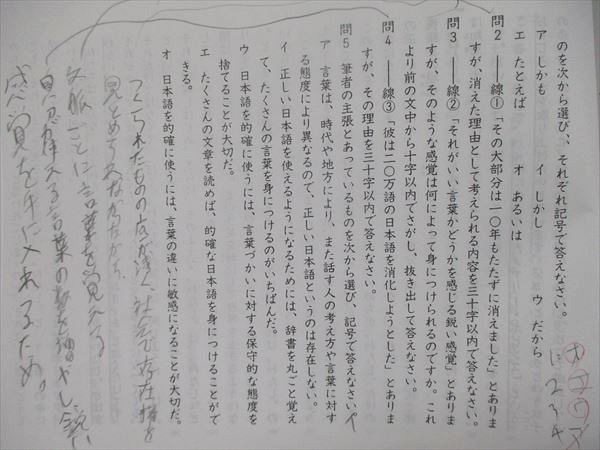 のを次から選び、それぞれ記号で答えなさい。
ア しかも イ しかし ウ だから
エ たとえば オ あるいは
問2 ――線①「その大部分は一〇年もたたずに消えました」とありま
すが、消えた理由として考えられる内容を三十字以内で答えなさい。
問3 ――線②「それがいい言葉かどうかを感じる鋭い感覚」とありま
すが、そのような感覚は何によって身につけられるのですか。これ
より前の文中から十字以内でさがし、抜き出して答えなさい。
問4 ――線③「彼は二〇万語の日本語を消化しようとした」とありま
すが、その理由を三十字以内で答えなさい。
問5 筆者の主張とあっているものを次から選び、記号で答えなさい。
ア 言葉は、時代や地方により、また話す人の考え方や言葉に対す
る態度により異なるので、正しい日本語というのは存在しない。
イ 正しい日本語を使えるようになるためには、辞書を丸ごと覚え
て、たくさんの言葉を身につけるのがいちばんだ。
ウ 日本語を的確に使うには、言葉づかいに対する保守的な態度を
捨てることが大切だ。
エ たくさんの文章を読めば、的確な日本語を身につけることがで
きる。
オ 日本語を的確に使うには、言葉の違いに敏感になることが大切だ。
つくられたものの広が浅く社会で存在持を
文脈ごとに言葉を覚える
使える言葉の数を増やし、鋭い
感覚を手に入れるため。